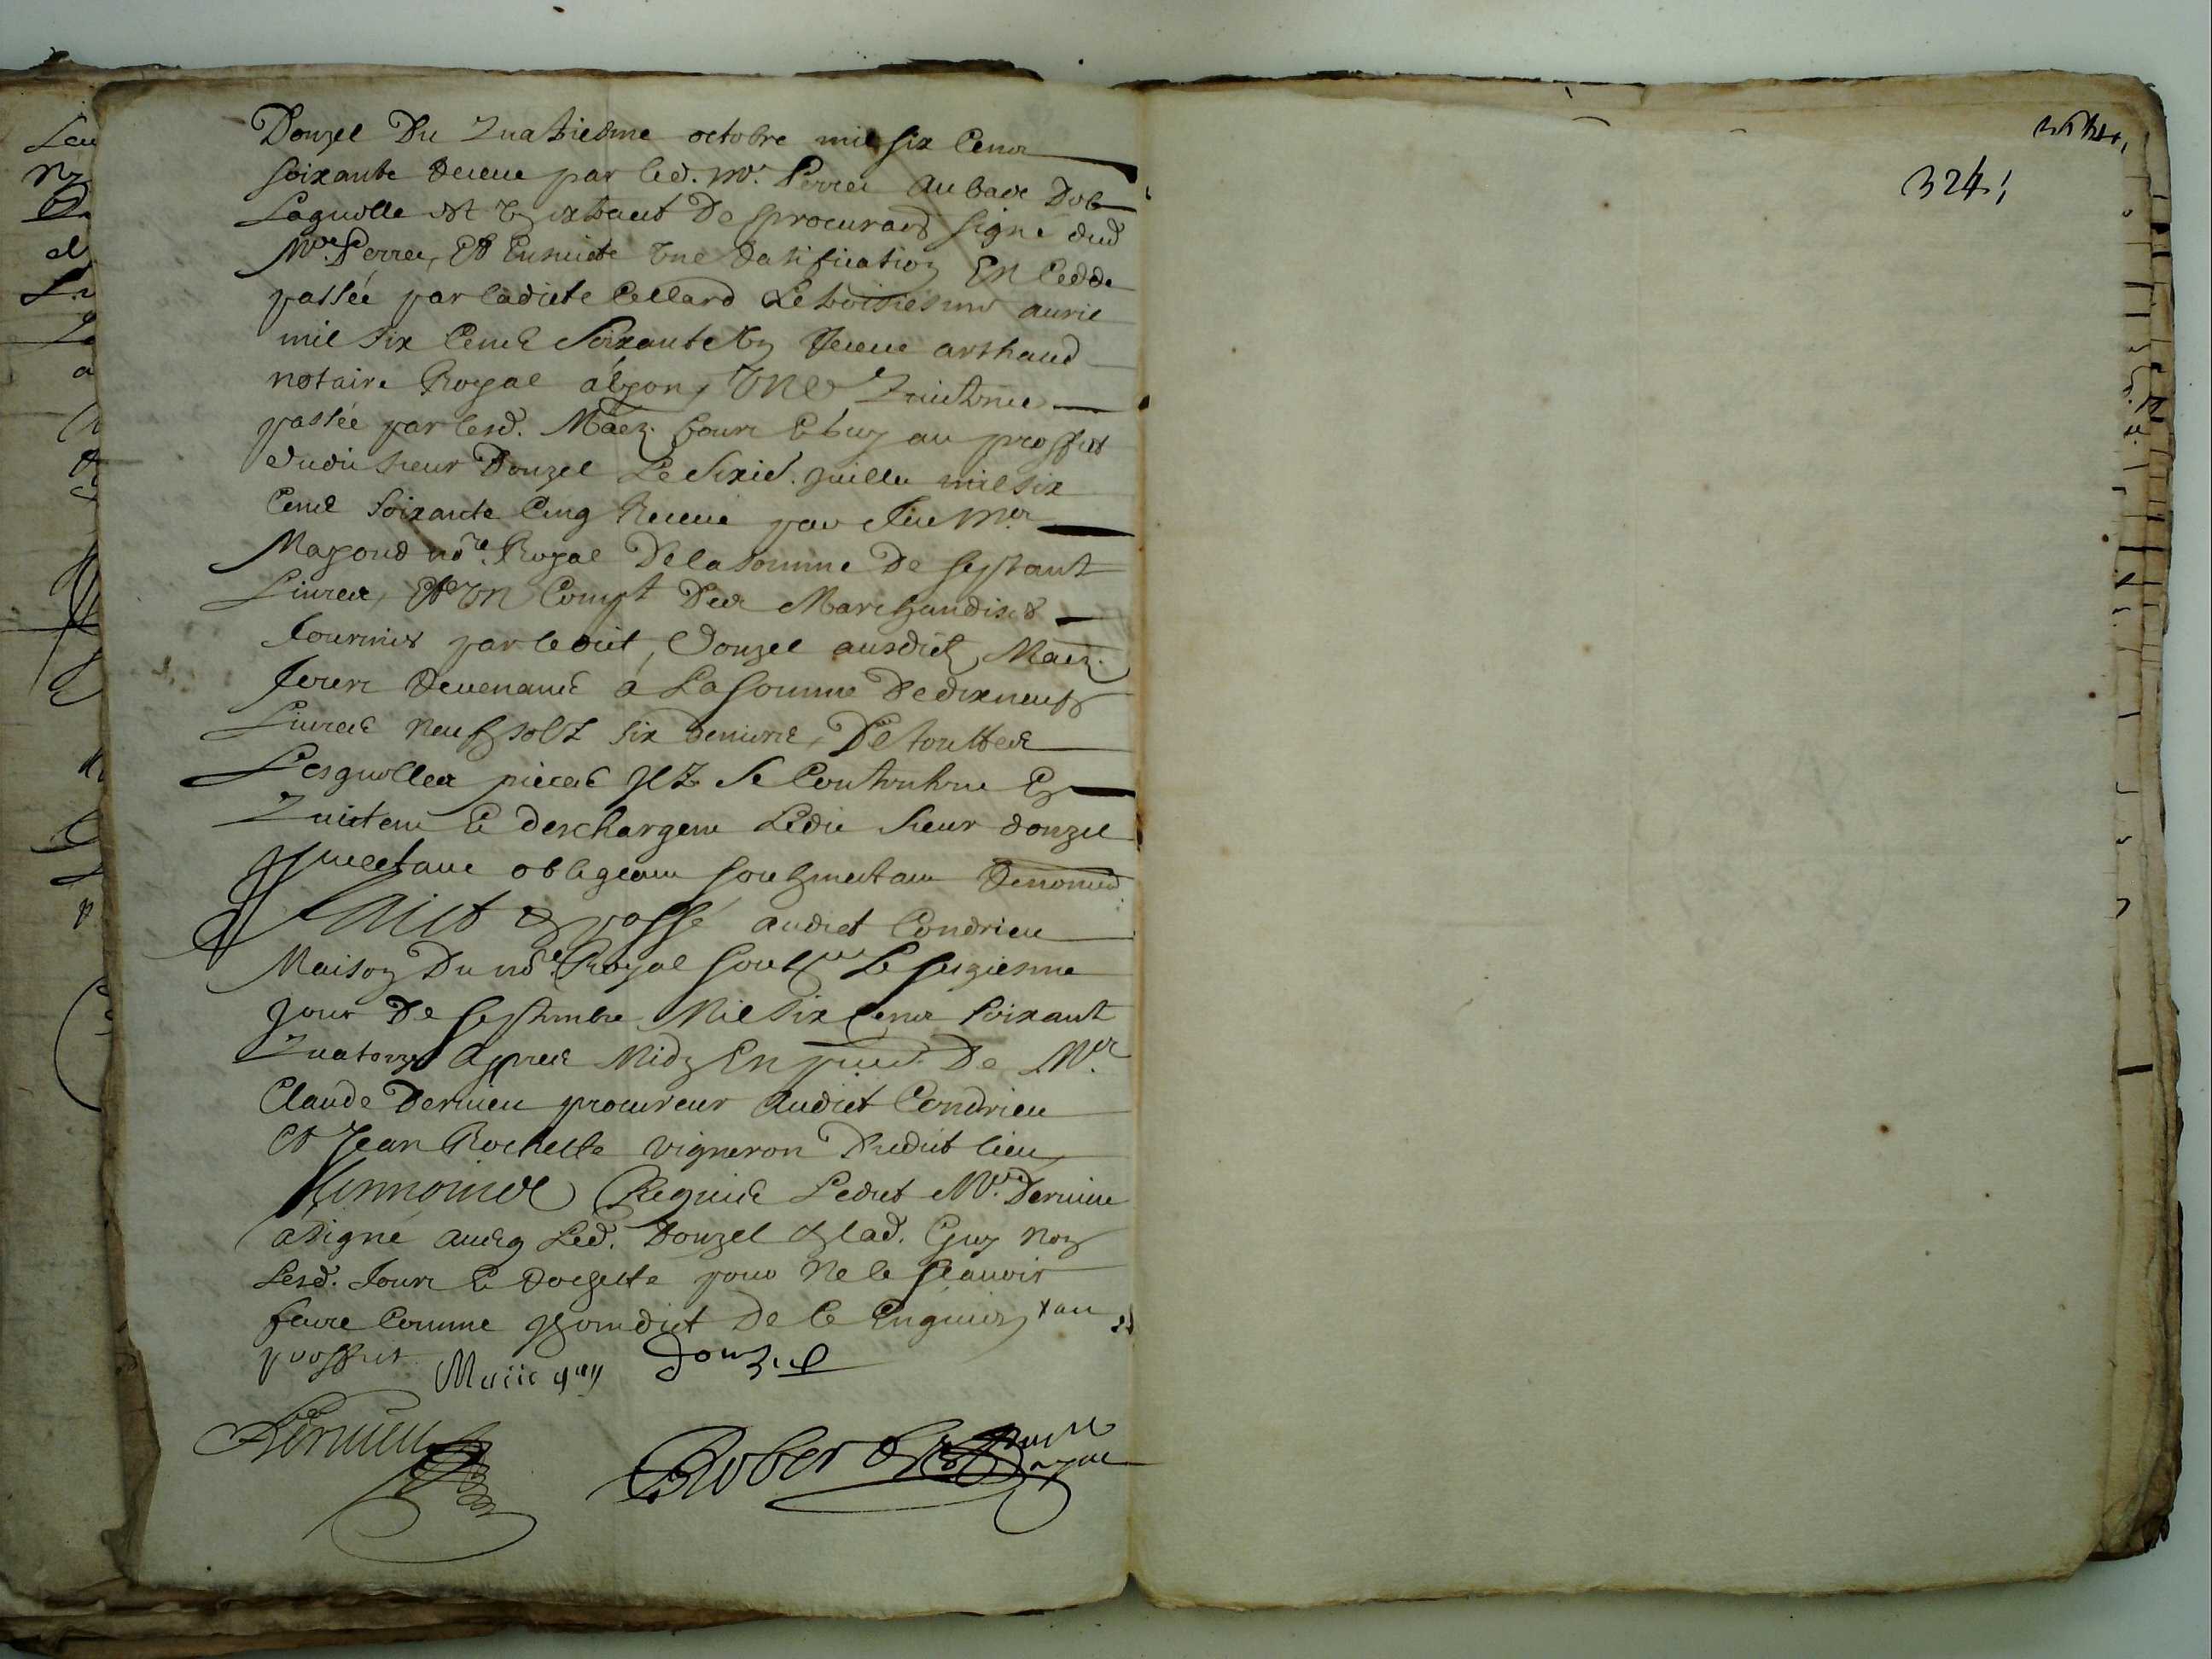 Donzel Du quatriesme octobre mil six Cens
soixante receue par led. Mr. Perret au bas de
Laquelle est un extraict de procuraon signé dud
Mre. Perret, Et Ensuitte une ratification En
passée par ladicte Cellard Le troisiesme auril
mil six Cens soixante un receue arthaud
notaire Royal à lyon, une quictance
passée par lesd. Mariez Jour et Guy au proffict
dudit sieur Donzel Le sixie. juillet mil six
Cens soixante Cinq Receue par feu Mre
nore. Royal De la somme De septant
Liures, Et un Compt Des Marchandises
fournies par ledict Donzel ausdictz Mariez
Jour Reuenant à La somme De dixneuf
Liures neuf solz six deniers, De touttes
Lesquelles pieces
quictent et deschargent Ledit sieur donzel
promettant obligeant soubzmettant Renoncant
Faict et passé audict Condrieu
Maison Du nore. Royal soubzne Le seziesme
jour De septembre Mil six Cens soixant
quatorze Apres Midy En pnce. De Mre
Claude Deruieu procureur Audict Condrieu
Et Jean Rochette vigneron Dudict lieu
Tesmoins Requis Ledict Mre. Deruieu
a signé auecq Led. Donzel et lad. Guy non
Lesd. Jour et Rochette pour ne le scauoir
faire Comme ont dict De Ce Enquis x au
proffict
Marie guy donzel
Deruieu
Robert nore royal
324